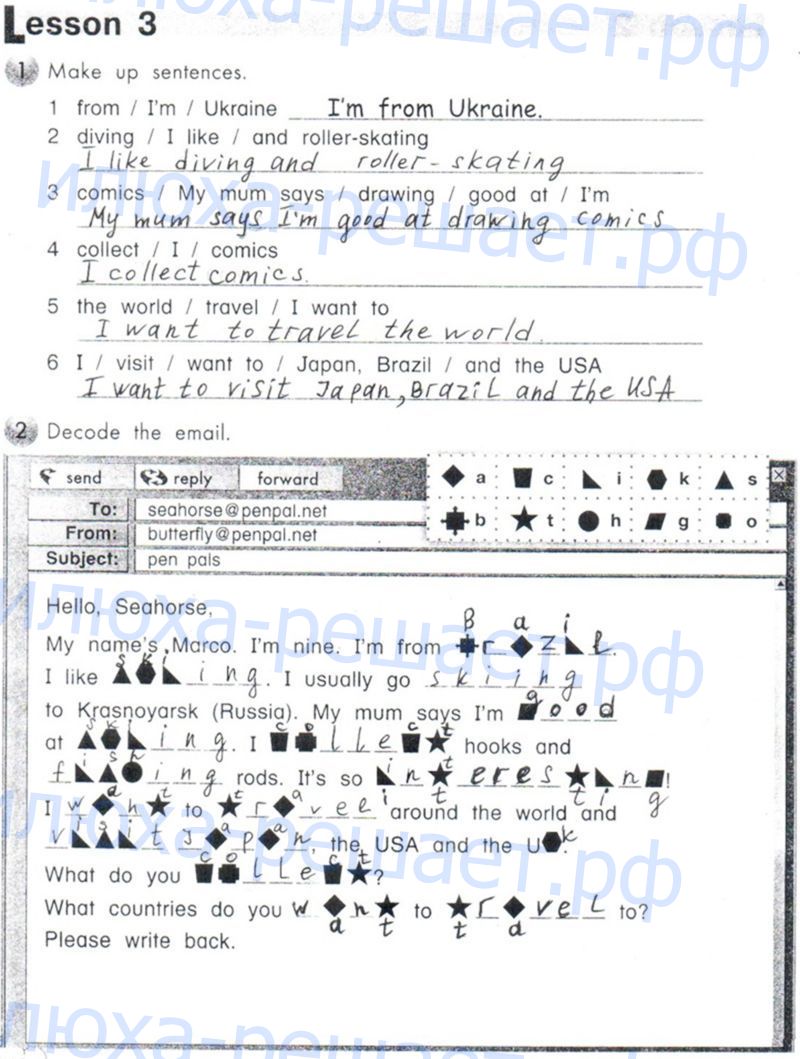 Lesson 3
1 Make up sentences.
1 from / I'm / Ukraine I'm from Ukraine.
2 diving / I like / and roller-skating
I like diving and roller-skating
3 comics / My mum says / drawing / good at / I'm
My mum says I'm good at drawing comics
4 collect / I / comics
I collect comics.
5 the world / travel / I want to
I want to travel the world.
6 I / visit / want to / Japan, Brazil / and the USA
I want to visit Japan, Brazil and the USA
2 Decode the email.
send reply forward
a c i k s
b t h g o
To: seahorse@penpal.net
From: butterfly@penpal.net
Subject: pen pals
Hello, Seahorse,
My name's Marco. I'm nine. I'm from Brazil.
I like skiing. I usually go skiing
to Krasnoyarsk (Russia). My mum says I'm good
at skiing. I collect hooks and
fishing rods. It's so interesting!
I want to travel around the world and
visit Japan, the USA and the UK.
What do you collect?
What countries do you want to travel to?
Please write back.
илюха-решает.рф
илюха-решает.рф
илюха-решает.рф
илюха-решает.рф
илюха-решает.рф